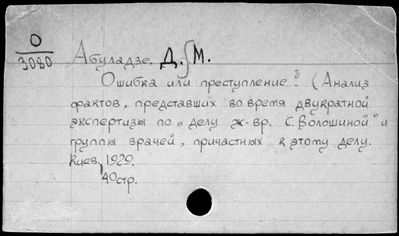 О
3080
Абуладзе, Д. М.
Ошибка или преступление? (Анализ
фактов, представших во время двукратной
экспертизы по „делу ж-вр. С. Волошиной" и
группы врачей, причастных к этому делу.
Киев, 1929.
40стр.